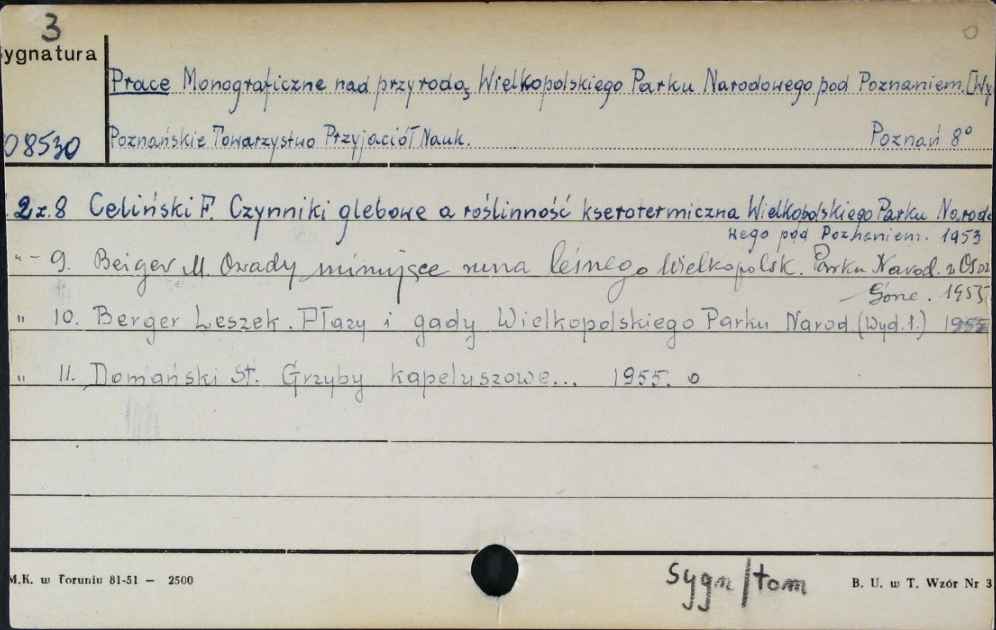 3
ygnatura
08530
Prace Monograficzne nad przyrodą Wielkopolskiego Parku Narodowego pod Poznaniem. [Wy
Poznańskie Towarzystwo Przyjaciół Nauk. Poznań 8°
2 z. 8 Celiński F. Czynniki glebowe a roślinność kserotermiczna Wielkopolskiego Parku Narodo
wego pod Poznaniem. 1953
„ – 9. Beiger M. Owady minujące runa leśnego Wielkopolsk. Parku Narod.
Górze. 1955
„ 10. Berger Leszek. Płazy i gady Wielkopolskiego Parku Narod (Wyd. 1.) 1955
„ 11. Domański St. Grzyby kapeluszowe... 1955.
M.K. w Toruniu 81-51 — 2500
Sygn/tom
B. U. w T. Wzór Nr 3